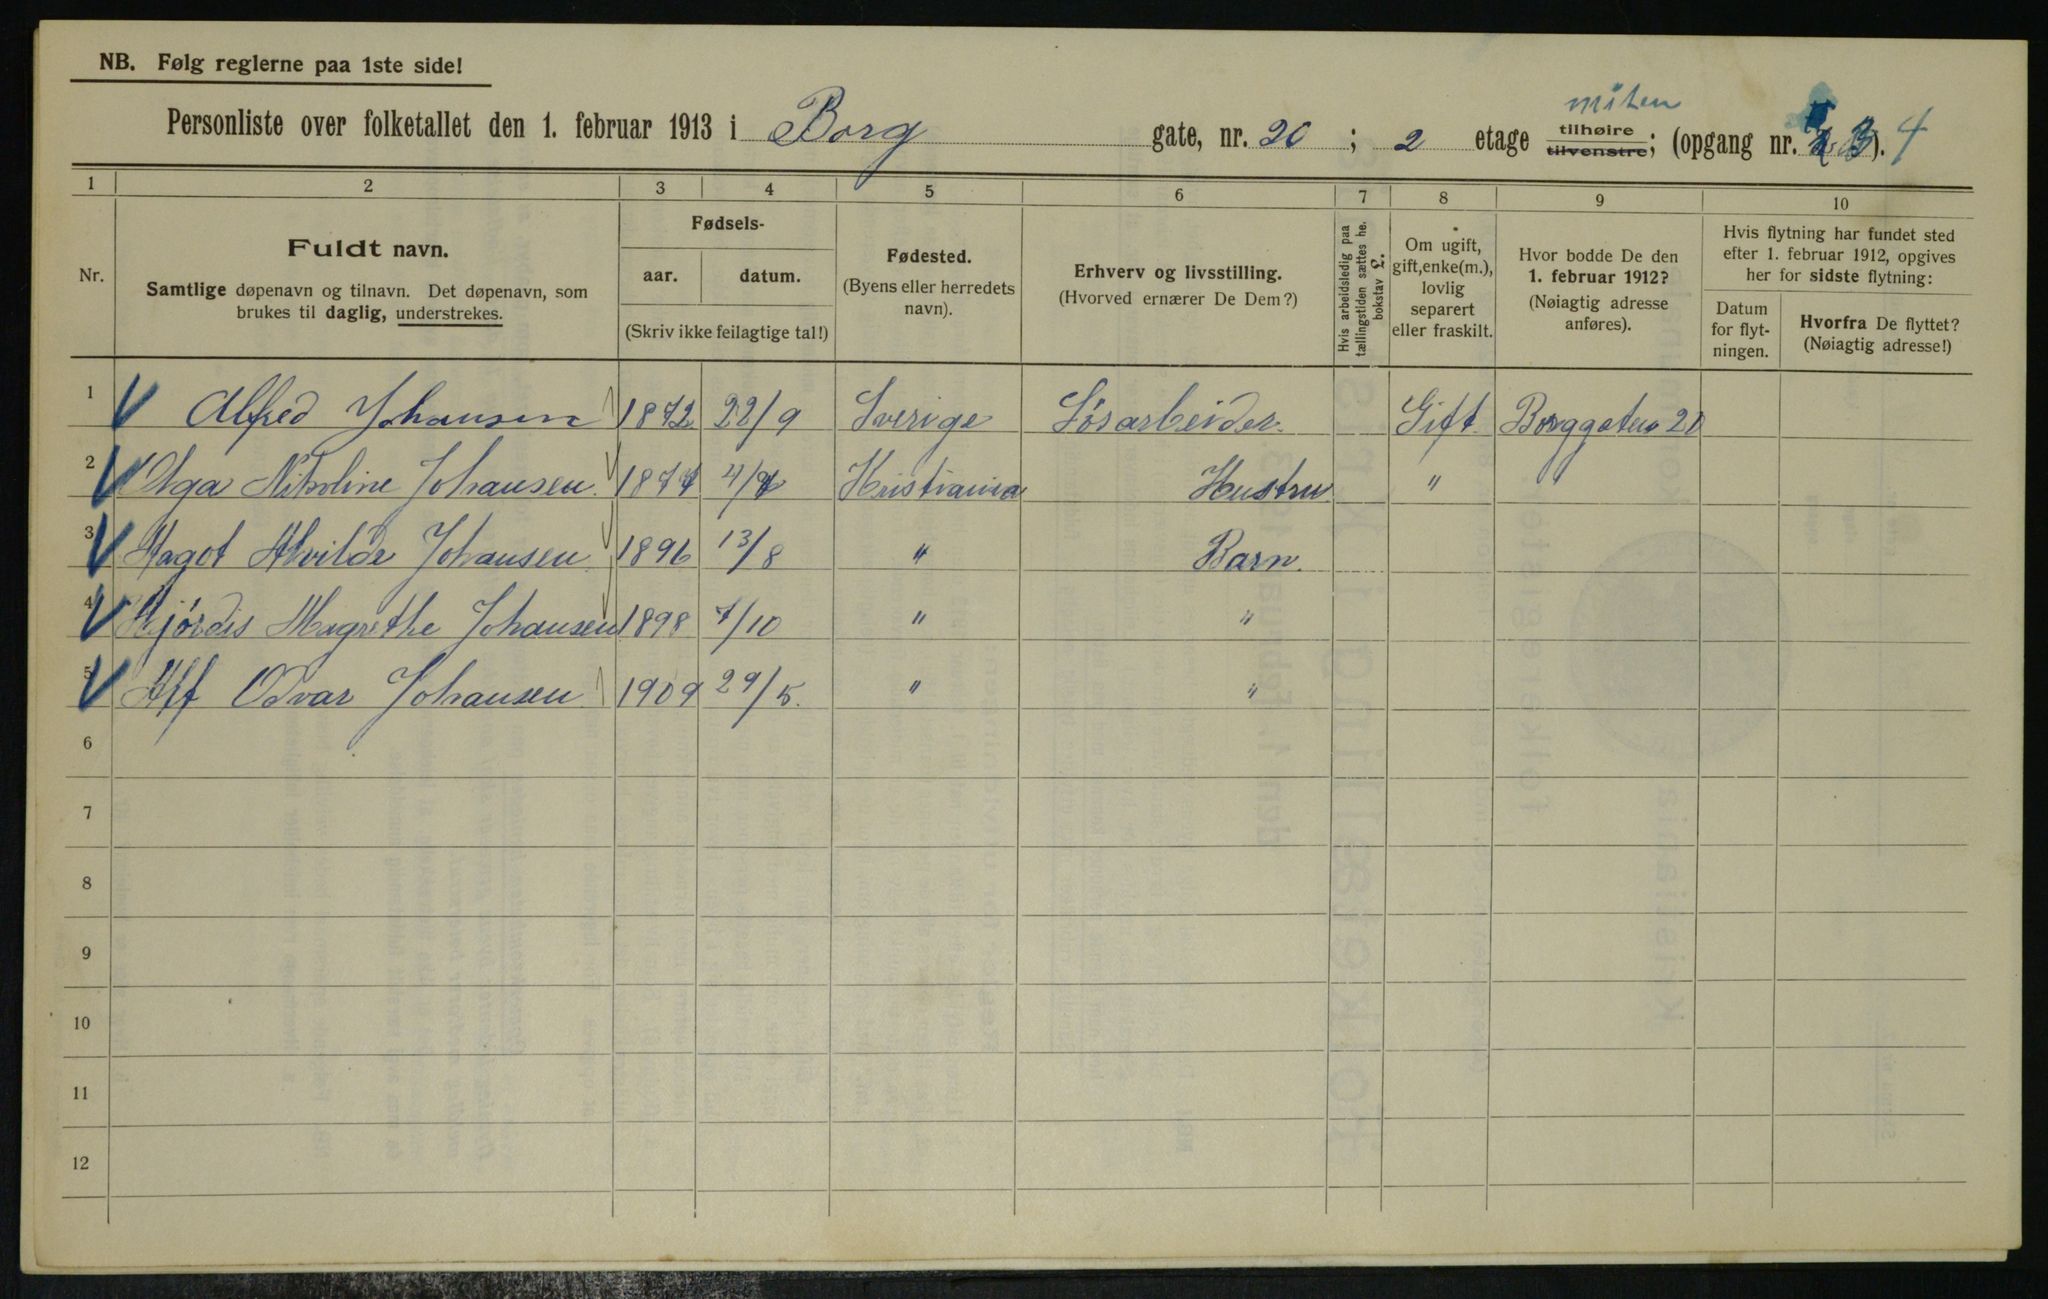 NB. Følg reglerne paa 1ste side!
miten
Personliste over folketallet den 1. februar 1913 i Borg gate, nr. 20 ; 2 etage tilhøire tilvenstre; (opgang nr. B). 4
1 2 3 4 5 6 7 8 9 10
Nr.
Fuldt navn.
Samtlige døpenavn og tilnavn. Det døpenavn, som
brukes til daglig, understrekes.
Fødsels-
aar. datum.
(Skriv ikke feilagtige tal!)
Fødested.
(Byens eller herredets
navn).
Erhverv og livsstilling.
(Hvorved ernærer De Dem?)
Hvis arbeidsledig paa
tællingstiden sættes he.
bokstav L.
Om ugift,
gift, enke(m.),
lovlig
separert
eller fraskilt.
Hvor bodde De den
1. februar 1912?
(Nøiagtig adresse
anføres).
Hvis flytning har fundet sted
efter 1. februar 1912, opgives
her for sidste flytning:
Datum
for flyt-
ningen.
Hvorfra De flyttet?
(Nøiagtig adresse!)
1 Alfred Johansen 1872 22/9 Sverige Løsarbeider. Gift Borggaten 20
2 Olga Nikoline Johansen 1877 4/7 Kristiania Hustru "
3 Magot Alvilde Johansen 1896 13/8 " Barn.
4 Hjørdis Magrethe Johansen 1898 7/10 " "
5 Alf Odvar Johansen 1909 29/5. " "
6
7
8
9
10
11
12